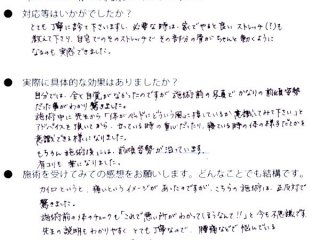 ● 対応等はいかがでしたか？
とても丁寧に診て下さいますし、必要な時は、家でやると良いストレッチ(?)も
教えて下さり、自宅でのそのストレッチでその部分の骨がちゃんと動くように
なるのも実感できました。
● 実際に具体的な効果はありましたか？
自分では、全く自覚がなかったのですが施術前の写真でかなりの前傾姿勢
だった事がわかり驚きました。
施術中に先生から「体がベッドにどういう風に接しているか意識してみて下さい」と
アドバイスを頂いてから、立っている時の重心だったり、寝ている時の体の様子だとかを
意識できる様になりました。
もちろん施術後には、前傾姿勢が治っています。
肩コリも楽になりました。
● 施術を受けてみての感想をお願いします。どんなことでも結構です。
カイロというと、痛いというイメージがあったのですが、こちらの施術は、正反対で
驚きました。
施術前の体のチェックも「これで悪い所がわかってしまうなんて!!」と今も不思議です。
先生の説明もわかりやすくとても丁寧なので、腰痛などで悩んでいる